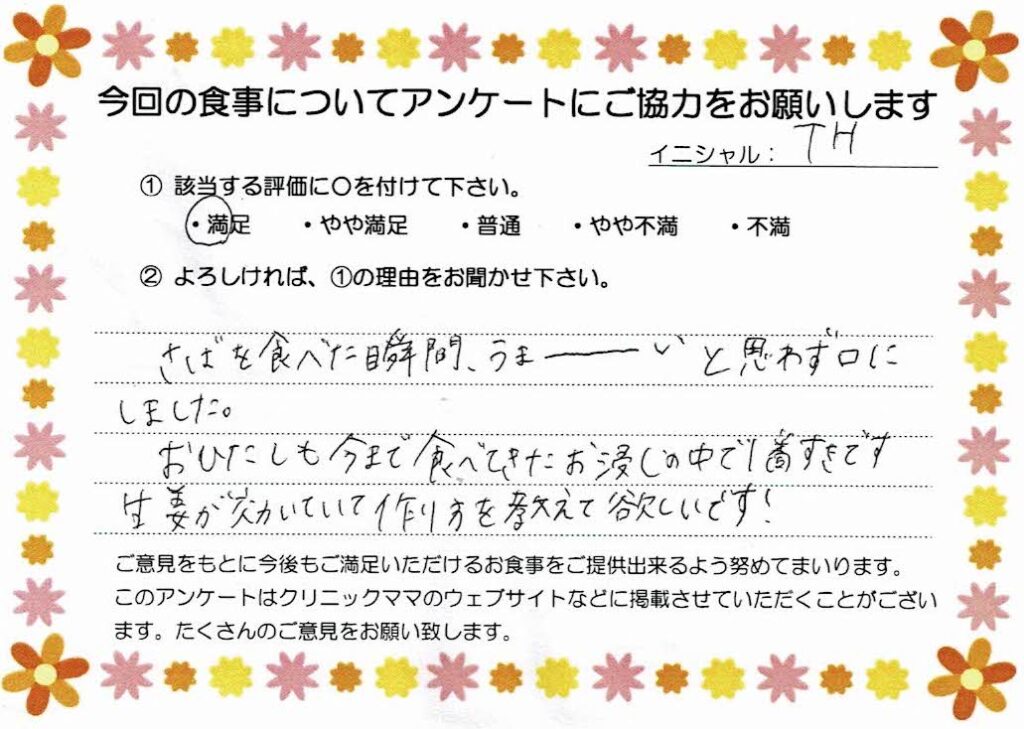 今回の食事についてアンケートにご協力をお願いします
イニシャル： TH
① 該当する評価に〇を付けて下さい。
・満足 ・やや満足 ・普通 ・やや不満 ・不満
② よろしければ、①の理由をお聞かせ下さい。
さばを食べた瞬間、うまーーい と思わず口に
しました。
おひたしも今まで食べてきたお浸しの中で1番すきです
生姜が効いていて作り方を教えて欲しいです!
ご意見をもとに今後もご満足いただけるお食事をご提供出来るよう努めてまいります。
このアンケートはクリニックママのウェブサイトなどに掲載させていただくことがござい
ます。たくさんのご意見をお願い致します。